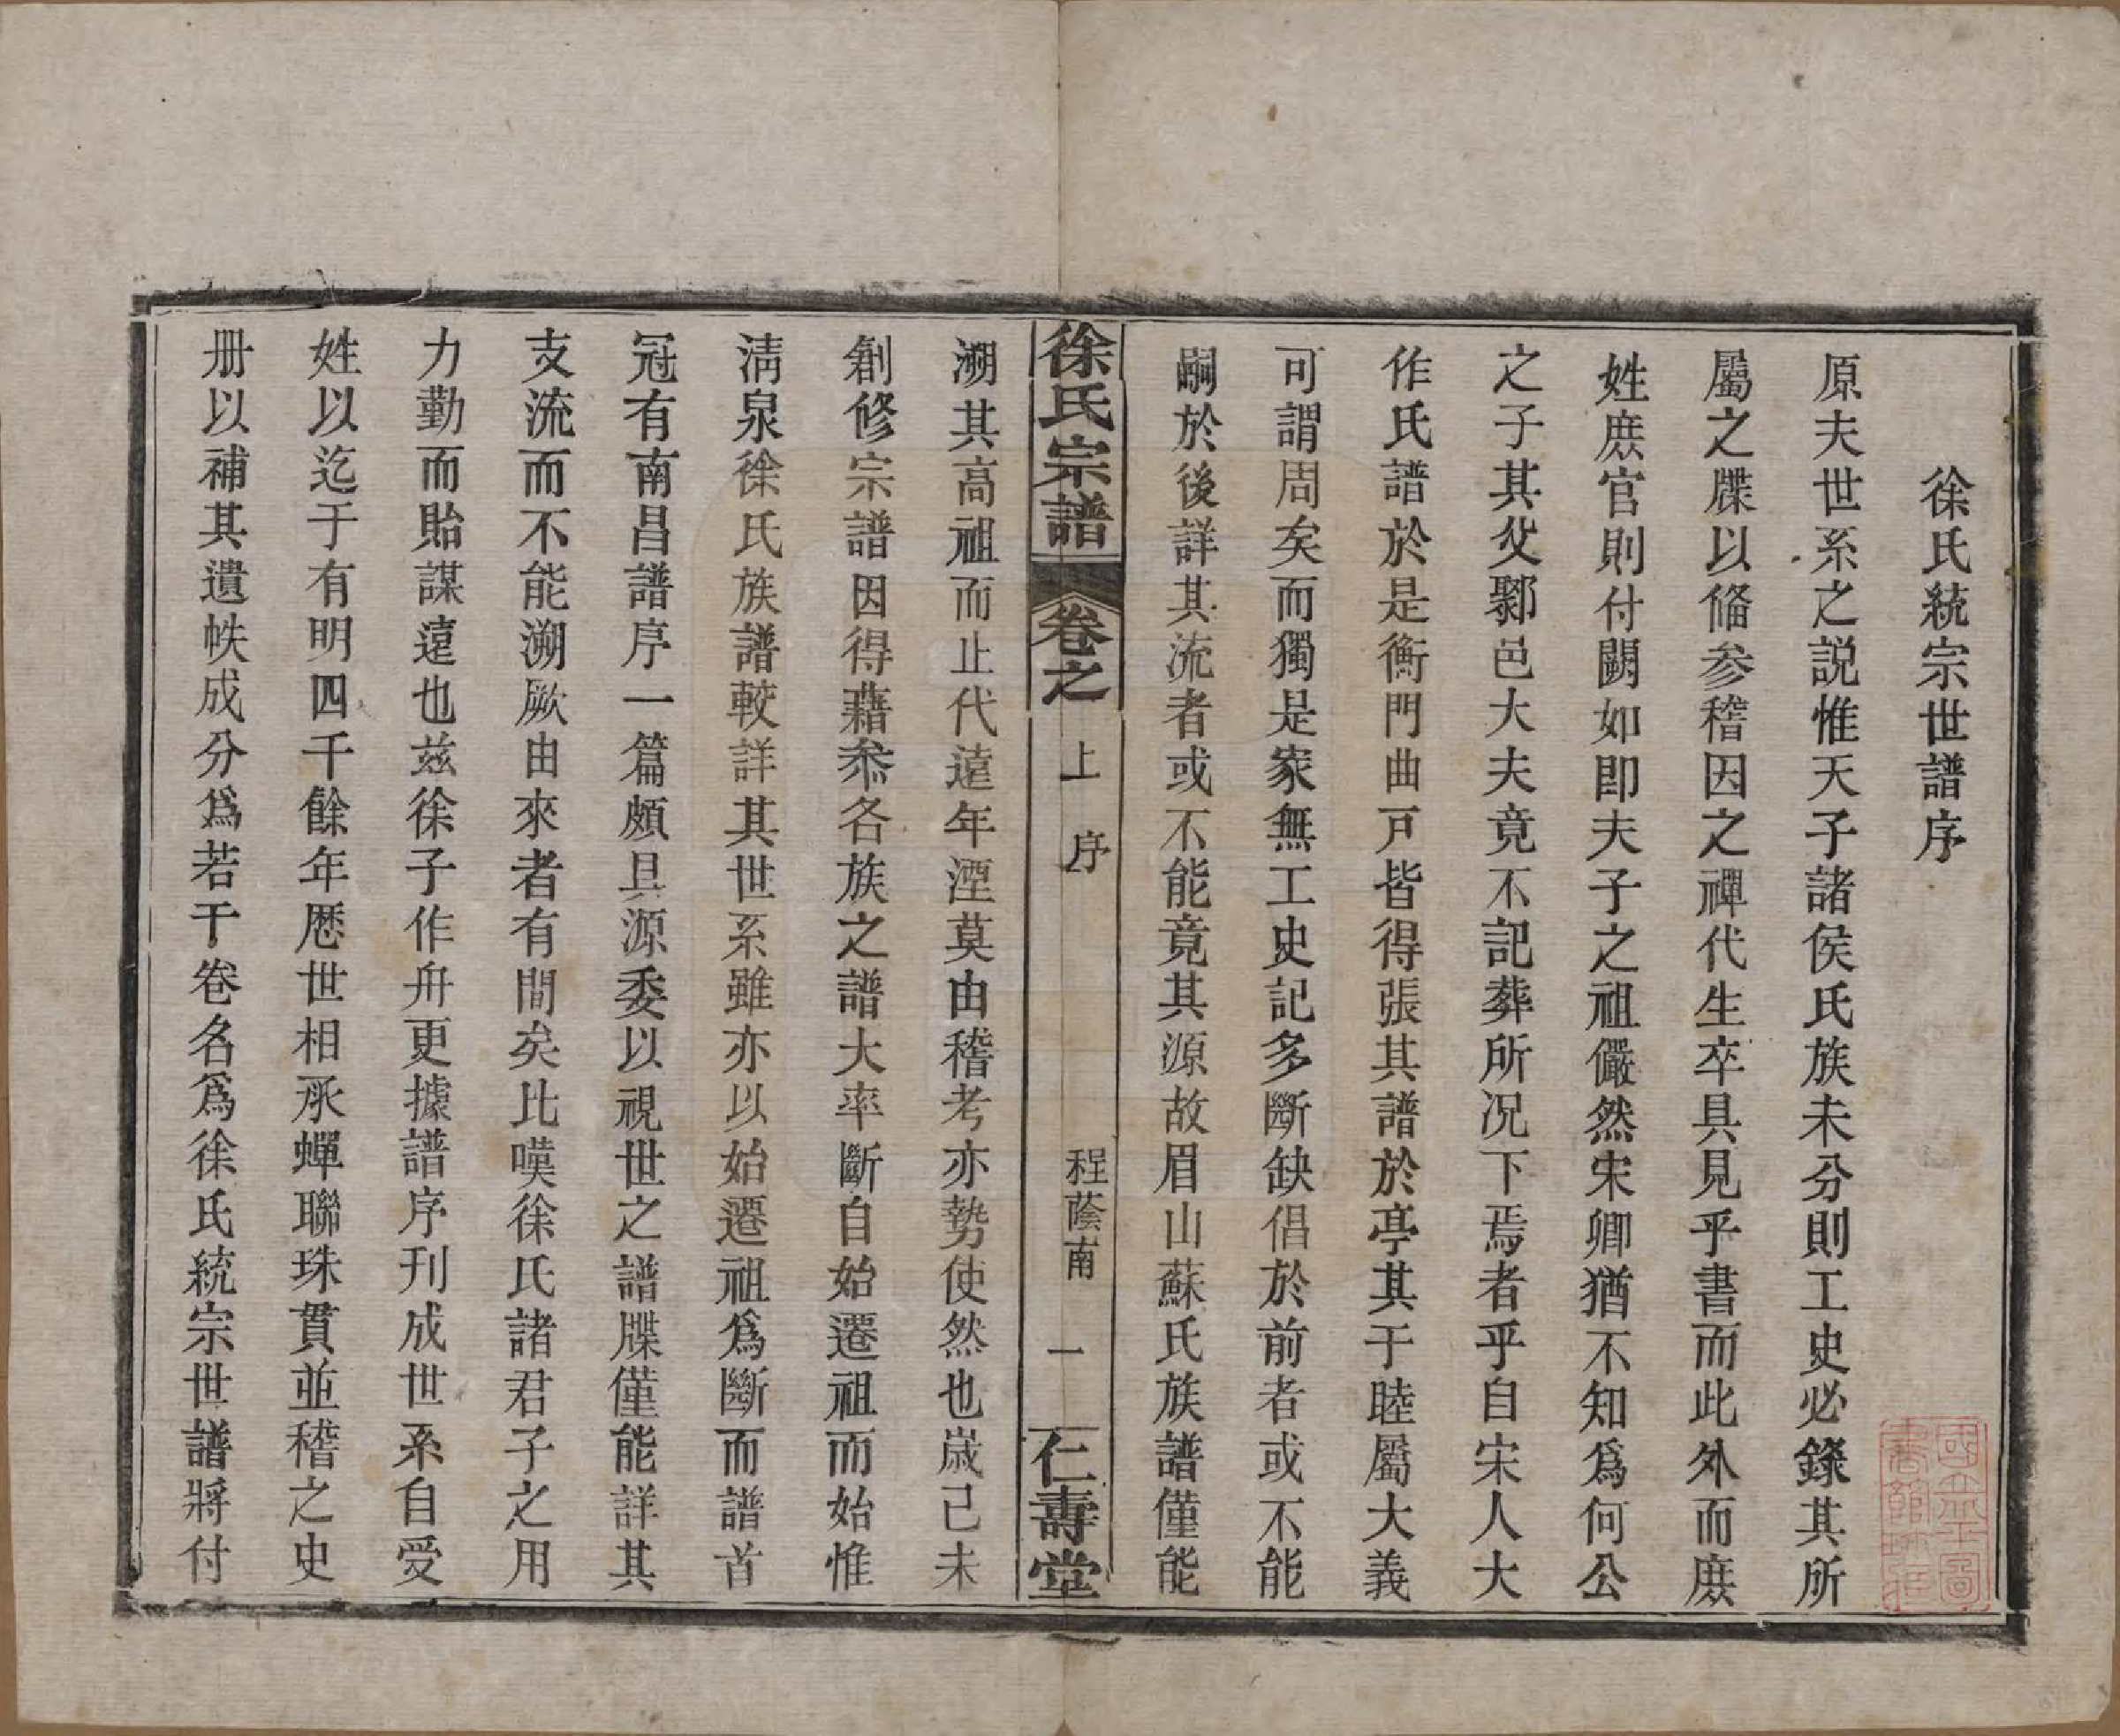 徐氏統宗世譜序
原夫世系之説惟天子諸侯氏族未分則工史必錄其所
屬之牒以偹参稽因之禪代生卒具見乎書而此外而庶
姓庶官則付闕如即夫子之祖儼然宋卿猶不知爲何公
之子其父鄹邑大夫竟不記葬所况下焉者乎自宋人大
作氏譜於是衡門曲戸皆得張其譜於亭其于睦屬大義
可謂周矣而獨是家無工史記多斷缺倡於前者或不能
嗣於後詳其流者或不能竟其源故眉山蘇氏族譜僅能
徐氏宗譜 卷之 上 序 程蔭南 一 仁壽堂
溯其高祖而止代遠年湮莫由稽考亦勢使然也歲己未
創修宗譜因得藉叅各族之譜大率斷自始遷祖而始惟
淸泉徐氏族譜較詳其世系雖亦以始遷祖爲斷而譜首
冠有南昌譜序一篇頗具源委以視世之譜牒僅能詳其
支流而不能溯厥由來者有間矣比嘆徐氏諸君子之用
力勤而貽謀遠也兹徐子作舟更據譜序刊成世系自受
姓以迄于有明四千餘年歷世相承蟬聯珠貫並稽之史
册以補其遺帙成分爲若干卷名爲徐氏統宗世譜將付
國立北平圖
書館珍藏